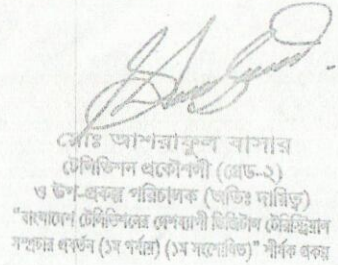 মোঃ আশরাফুল বাসার
টেলিভিশন প্রকৌশলী (গ্রেড-২)
ও উপ-প্রকল্প পরিচালক (অতিঃ দায়িত্ব)
"বাংলাদেশ টেলিভিশনের দেশব্যাপী ডিজিটাল টেরিস্ট্রিয়াল
সম্প্রচার প্রবর্তন (১ম পর্যায়) (১ম সংশোধিত)" শীর্ষক প্রকল্প